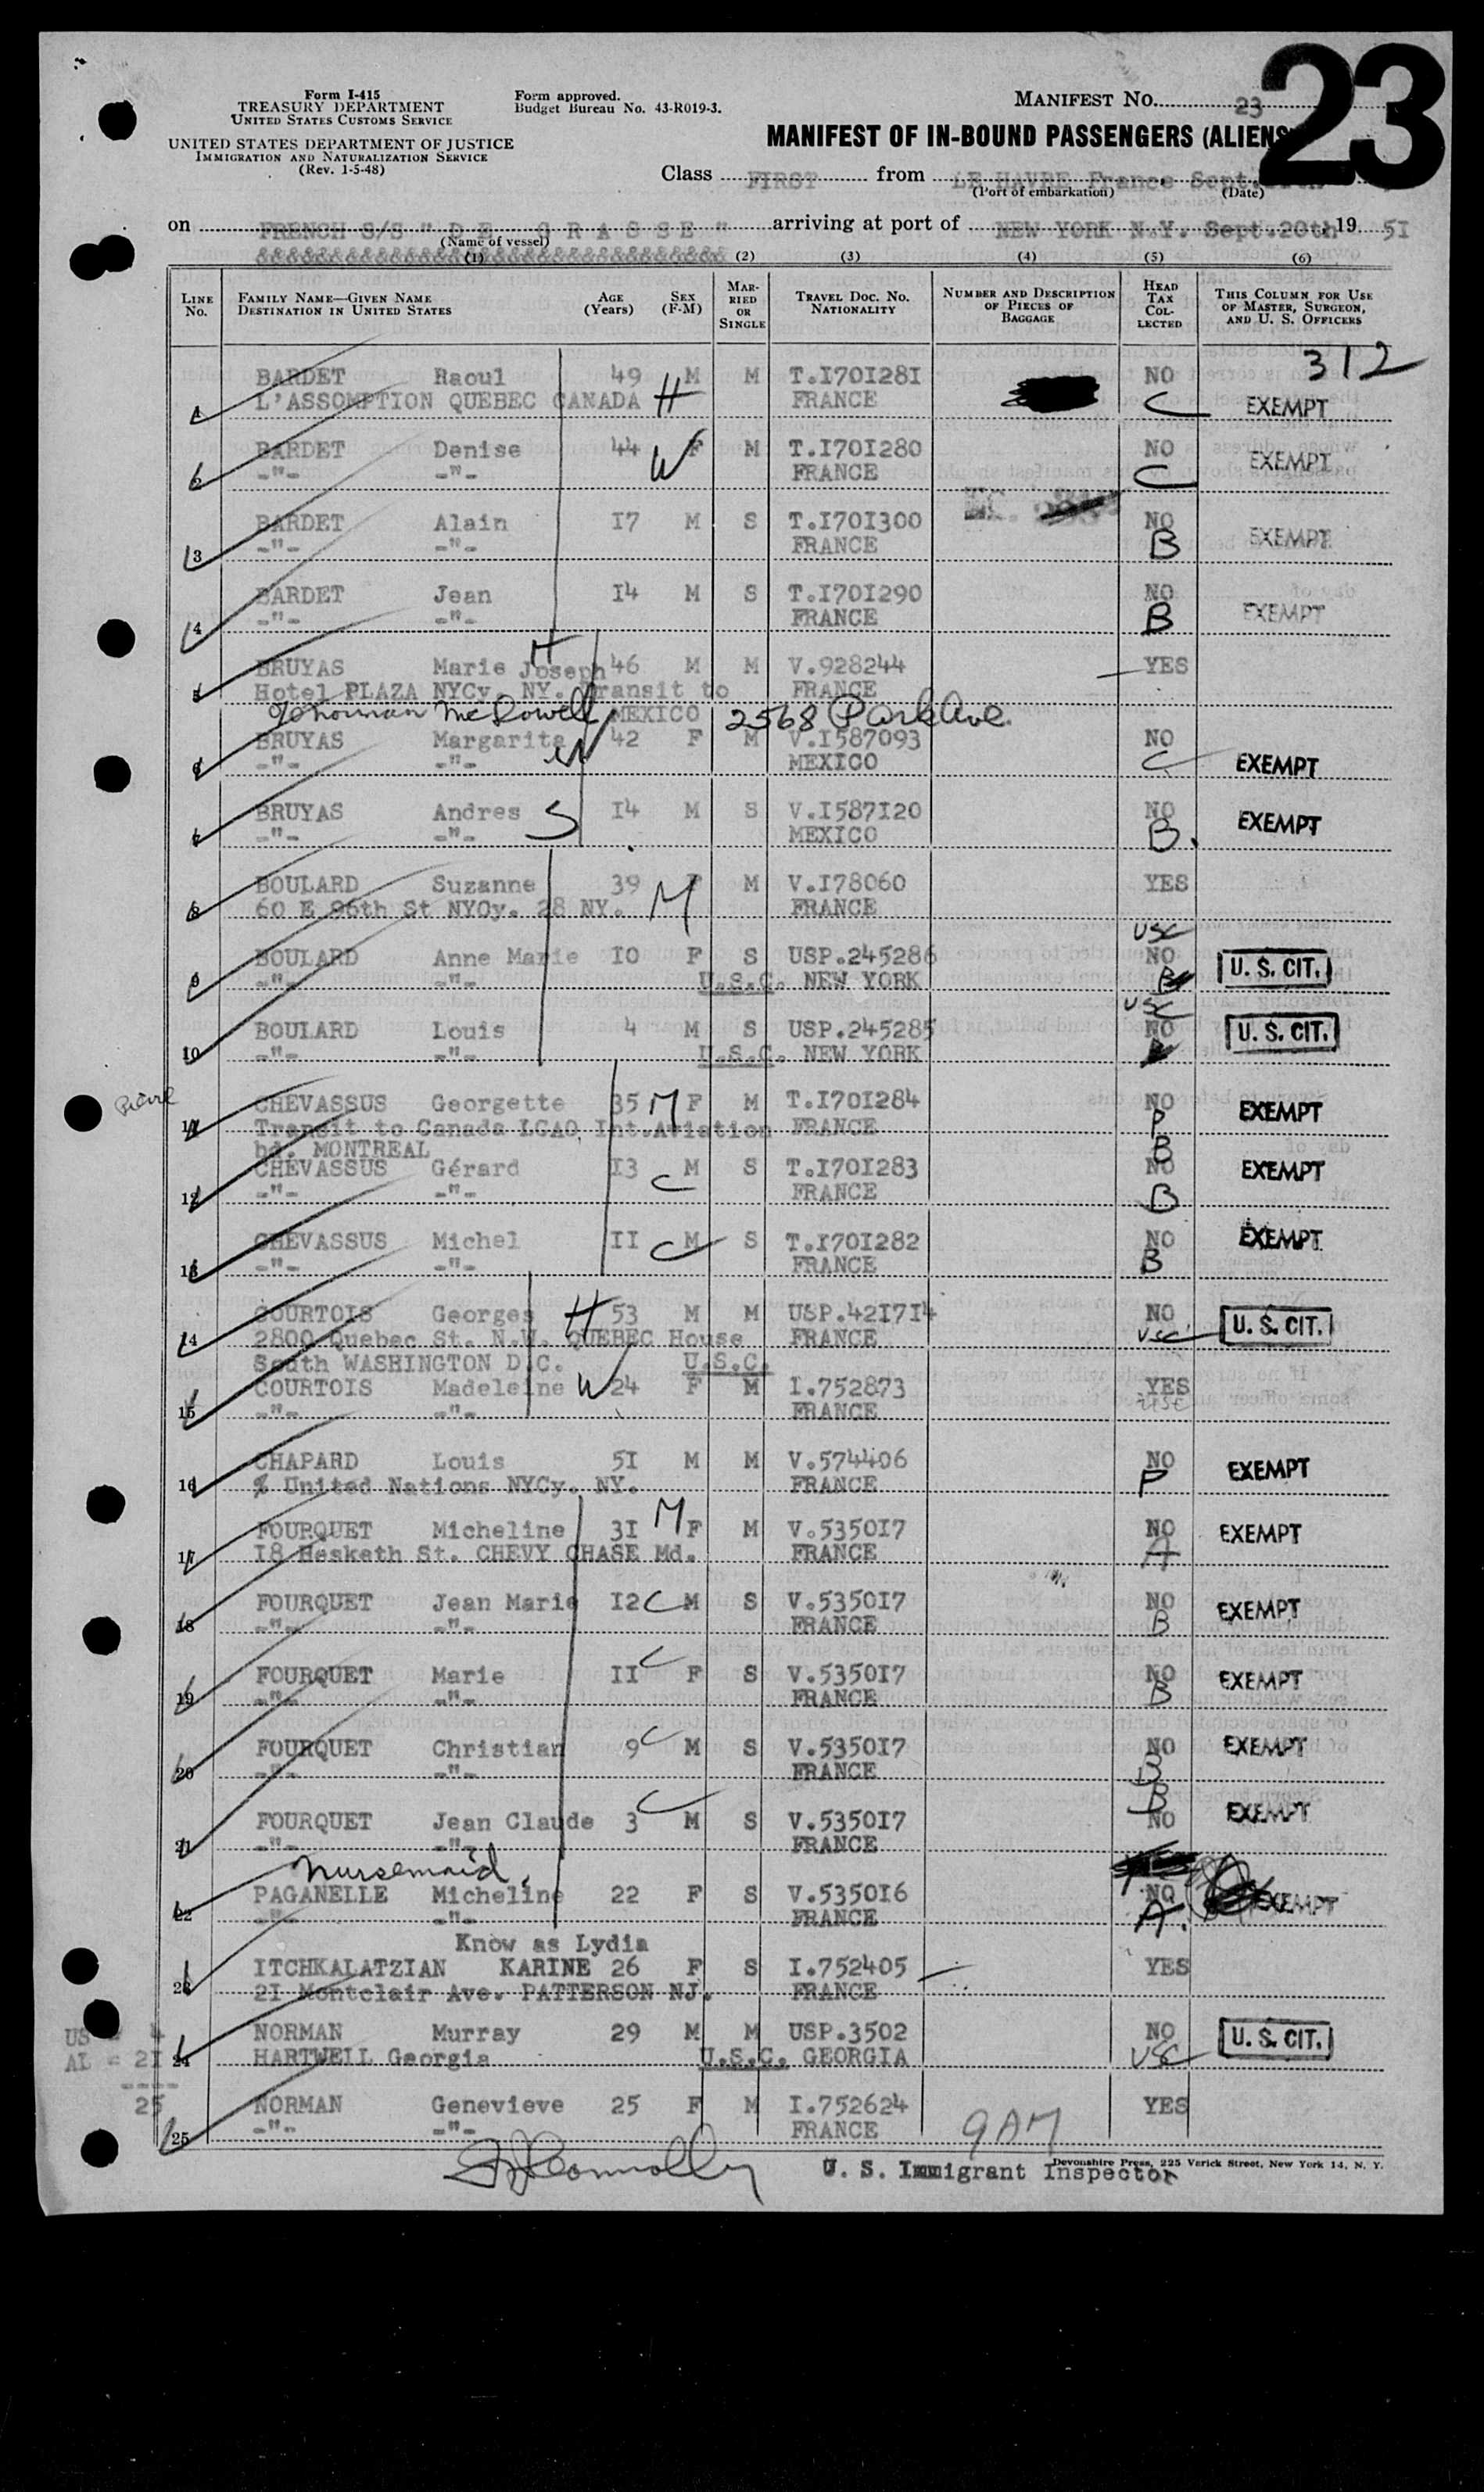 23
Form I-415
TREASURY DEPARTMENT
UNITED STATES CUSTOMS SERVICE
UNITED STATES DEPARTMENT OF JUSTICE
IMMIGRATION AND NATURALIZATION SERVICE
(Rev. 1-5-48)
Form approved.
Budget Bureau No. 43-R019-3.
MANIFEST No. 23
MANIFEST OF IN-BOUND PASSENGERS (ALIENS
Class FIRST from LE HAVRE France Sept.
(Port of embarkation) (Date)
on FRENCH S/S " D E G R A S S E " arriving at port of NEW YORK N.Y. Sept.20th 19 5I
(Name of vessel)
(1) (2) (3) (4) (5) (6)
LINE No. FAMILY NAME—GIVEN NAME DESTINATION IN UNITED STATES AGE (Years) SEX (F-M) MARRIED OR SINGLE TRAVEL DOC. No. NATIONALITY NUMBER AND DESCRIPTION OF PIECES OF BAGGAGE HEAD TAX COLLECTED THIS COLUMN FOR USE OF MASTER, SURGEON, AND U. S. OFFICERS
312
1 BARDET Raoul 49 H M M T.I70I28I NO
L'ASSOMPTION QUEBEC CANADA FRANCE C EXEMPT
2 BARDET Denise 44 W F M T.I70I280 NO EXEMPT
-"- -"- FRANCE C
3 BARDET Alain I7 M S T.I70I300 NO EXEMPT
-"- -"- FRANCE B
4 BARDET Jean I4 M S T.I70I290 NO EXEMPT
-"- -"- FRANCE B
H
5 BRUYAS Marie Joseph 46 M M V.928244 YES
Hotel PLAZA NYCy. NY. Transit to FRANCE
Norman McDowell MEXICO 2568 Park Ave.
6 BRUYAS Margarita W 42 F M V.I587093 NO
-"- -"- MEXICO C EXEMPT
7 BRUYAS Andres S I4 M S V.I587I20 NO EXEMPT
-"- -"- MEXICO B.
8 BOULARD Suzanne 39 M F M V.I78060 YES
60 E 96th St NYCy. 28 NY. FRANCE
USC
9 BOULARD Anne Marie IO F S USP.245286 NO U. S. CIT.
-"- -"- U.S.C. NEW YORK B
USC
10 BOULARD Louis 4 M S USP.245285 NO U. S. CIT.
-"- -"- U.S.C. NEW YORK
11 CHEVASSUS Georgette 35 M F M T.I70I284 NO EXEMPT
Transit to Canada ICAO Int.Aviation FRANCE P
bd. MONTREAL B
12 CHEVASSUS Gérard I3 C M S T.I70I283 NO EXEMPT
-"- -"- FRANCE B
13 CHEVASSUS Michel II C M S T.I70I282 NO EXEMPT
-"- -"- FRANCE B
14 COURTOIS Georges H 53 M M USP.42I7I4 NO U. S. CIT.
2800 Quebec St. N.W. QUEBEC House FRANCE USC
South WASHINGTON D.C. U.S.C.
15 COURTOIS Madeleine W 24 F M I.752873 YES
-"- -"- FRANCE USC
16 CHAPARD Louis 5I M M V.574406 NO EXEMPT
% United Nations NYCy. NY. FRANCE P
17 FOURQUET Micheline 3I M F M V.5350I7 NO EXEMPT
I8 Hesketh St. CHEVY CHASE Md. FRANCE A
18 FOURQUET Jean Marie I2 C M S V.5350I7 NO EXEMPT
-"- -"- FRANCE B
19 FOURQUET Marie II C F S V.5350I7 NO EXEMPT
-"- -"- FRANCE B
20 FOURQUET Christian 9 C M S V.5350I7 NO EXEMPT
-"- -"- FRANCE B
B
21 FOURQUET Jean Claude 3 C M S V.5350I7 NO EXEMPT
-"- -"- FRANCE
Nursemaid,
22 PAGANELLE Micheline 22 F S V.5350I6 NO EXEMPT
-"- -"- FRANCE A.
Know as Lydia
23 ITCHKALATZIAN KARINE 26 F S I.752405 YES
2I Montclair Ave. PATTERSON NJ. FRANCE
US = 4
24 NORMAN Murray 29 M M USP.3502 NO U. S. CIT.
AL = 2I HARTWELL Georgia U.S.C. GEORGIA USC
25
25 NORMAN Genevieve 25 F M I.752624 YES
-"- -"- FRANCE 9AM
Connolly U. S. Immigrant Inspector
Devonshire Press, 225 Varick Street, New York 14, N. Y.